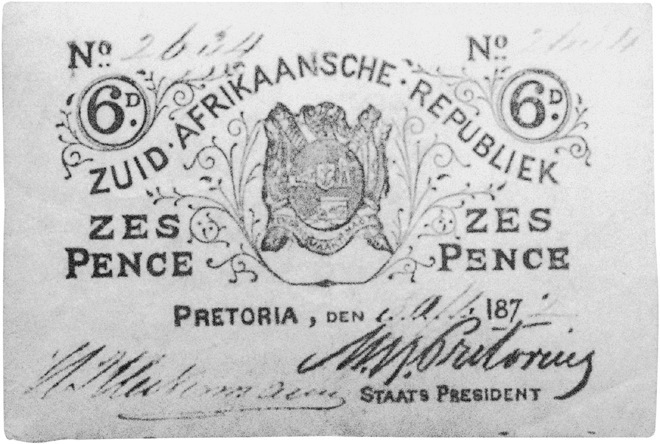 No. 2634 No.
6D. 6D.
ZUID·AFRIKAANSCHE·REPUBLIEK
ZES ZES
PENCE PENCE
PRETORIA, DEN 187
M. W. Pretorius
STAATS PRESIDENT